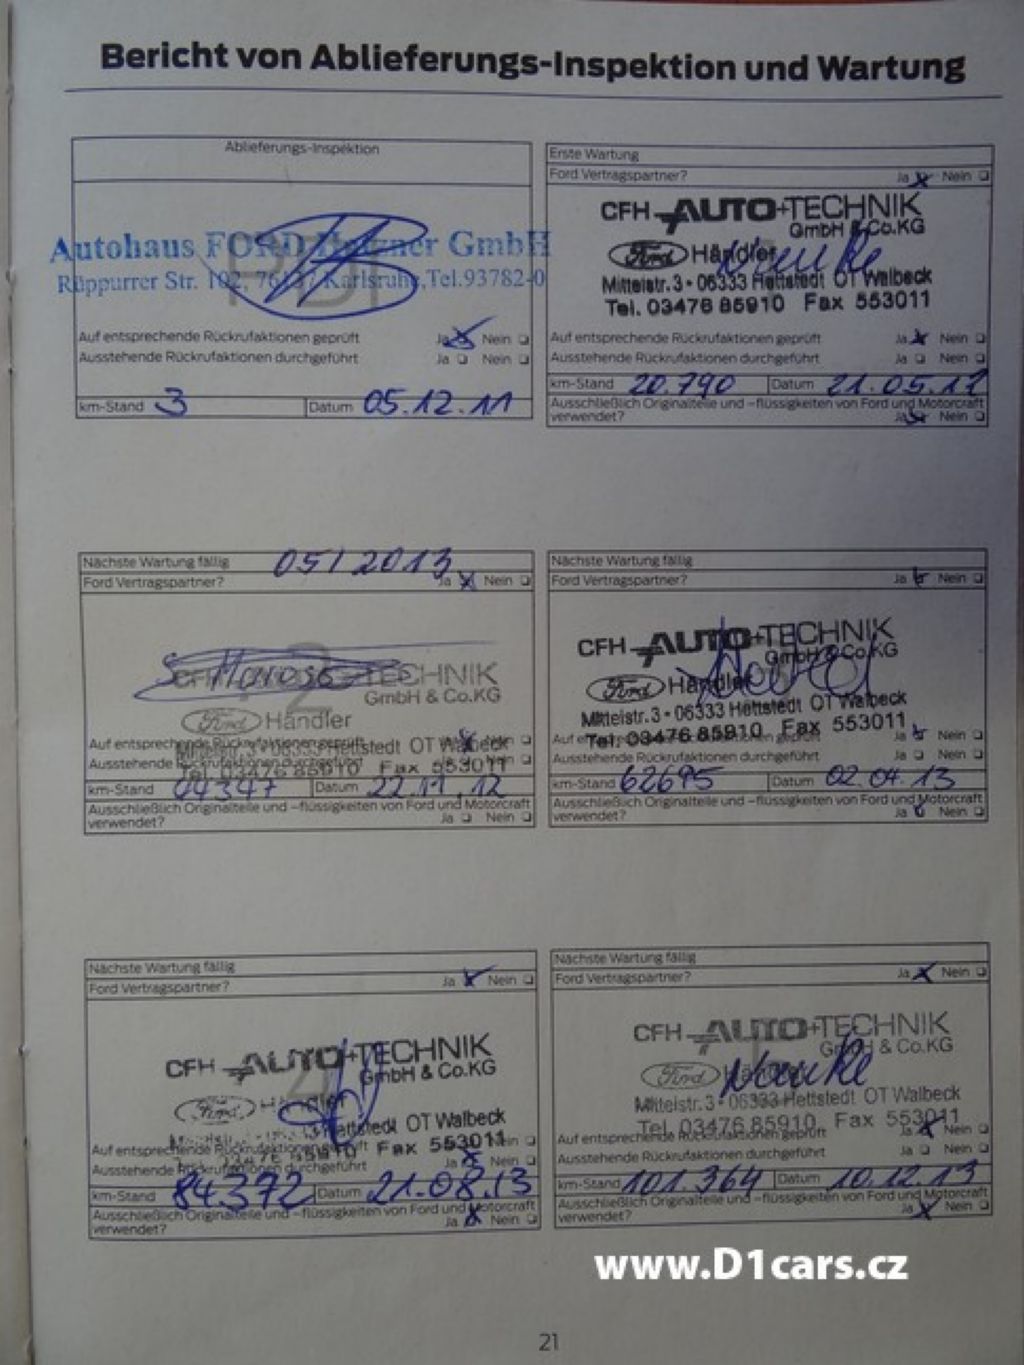 Bericht von Ablieferungs-Inspektion und Wartung
Ablieferungs-Inspektion
Autohaus FORD GmbH
Rüppurrer Str. 102, 76137 Karlsruhe, Tel. 93782-0
Auf entsprechende Rückrufaktionen geprüft Ja Nein
Ausstehende Rückrufaktionen durchgeführt Ja Nein
km-Stand 3 Datum 05.12.11
Erste Wartung
Ford Vertragspartner? Ja Nein
CFH AUTO+TECHNIK
GmbH & Co.KG
Ford Händler
Mittelstr. 3 - 06333 Hettstedt OT Walbeck
Tel. 03476 85910 Fax 553011
Auf entsprechende Rückrufaktionen geprüft Ja Nein
Ausstehende Rückrufaktionen durchgeführt Ja Nein
km-Stand 20.790 Datum 21.05.12
Ausschließlich Originalteile und –flüssigkeiten von Ford und Motorcraft
verwendet? Ja Nein
Nächste Wartung fällig 05/2013
Ford Vertragspartner? Ja Nein
CFH TECHNIK
GmbH & Co.KG
Ford Händler
Auf entsprechende Rückrufaktionen geprüft Ja Nein
Mittelstr. 3 - 06333 Hettstedt OT Walbeck
Ausstehende Rückrufaktionen durchgeführt Ja Nein
Tel. 03476 85910 Fax 553011
km-Stand Datum 22.11.12
Ausschließlich Originalteile und –flüssigkeiten von Ford und Motorcraft
verwendet? Ja Nein
Nächste Wartung fällig
Ford Vertragspartner? Ja Nein
CFH AUTO+TECHNIK
GmbH & Co.KG
Ford Händler
Mittelstr. 3 - 06333 Hettstedt OT Walbeck
Tel. 03476 85910 Fax 553011
Auf entsprechende Rückrufaktionen geprüft Ja Nein
Ausstehende Rückrufaktionen durchgeführt Ja Nein
km-Stand 62695 Datum 02.04.13
Ausschließlich Originalteile und –flüssigkeiten von Ford und Motorcraft
verwendet? Ja Nein
Nächste Wartung fällig
Ford Vertragspartner? Ja Nein
CFH AUTO+TECHNIK
GmbH & Co.KG
Ford Händler
Hettstedt OT Walbeck
85910 Fax 553011
Auf entsprechende Rückrufaktionen geprüft Nein
Ausstehende Rückrufaktionen durchgeführt Ja Nein
km-Stand 84372 Datum 21.08.13
Ausschließlich Originalteile und –flüssigkeiten von Ford und Motorcraft
verwendet? Ja Nein
Nächste Wartung fällig
Ford Vertragspartner? Ja Nein
CFH AUTO+TECHNIK
GmbH & Co.KG
Ford Händler
Mittelstr. 3 - 06333 Hettstedt OT Walbeck
Tel. 03476 85910 Fax 553011
Auf entsprechende Rückrufaktionen geprüft Ja Nein
Ausstehende Rückrufaktionen durchgeführt Ja Nein
km-Stand 101.364 Datum 10.12.13
Ausschließlich Originalteile und –flüssigkeiten von Ford und Motorcraft
verwendet? Ja Nein
www.D1cars.cz
21